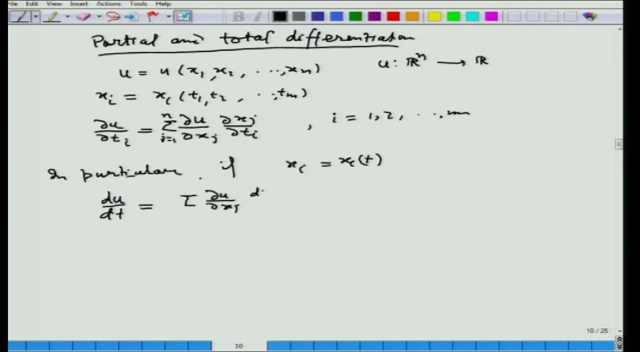 Edit View Insert Actions Tools Help
Partial and total differentiation
u = u(x₁, x₂, ..., xₙ) u: ℝⁿ → ℝ
xᵢ = xᵢ(t₁, t₂, ..., tₘ)
∂u/∂tᵢ = Σⁿⱼ₌₁ ∂u/∂xⱼ ∂xⱼ/∂tᵢ , i = 1, 2, ..., m
In particular, if xᵢ = xᵢ(t)
du/dt = Σ ∂u/∂xⱼ d
10 / 25
10